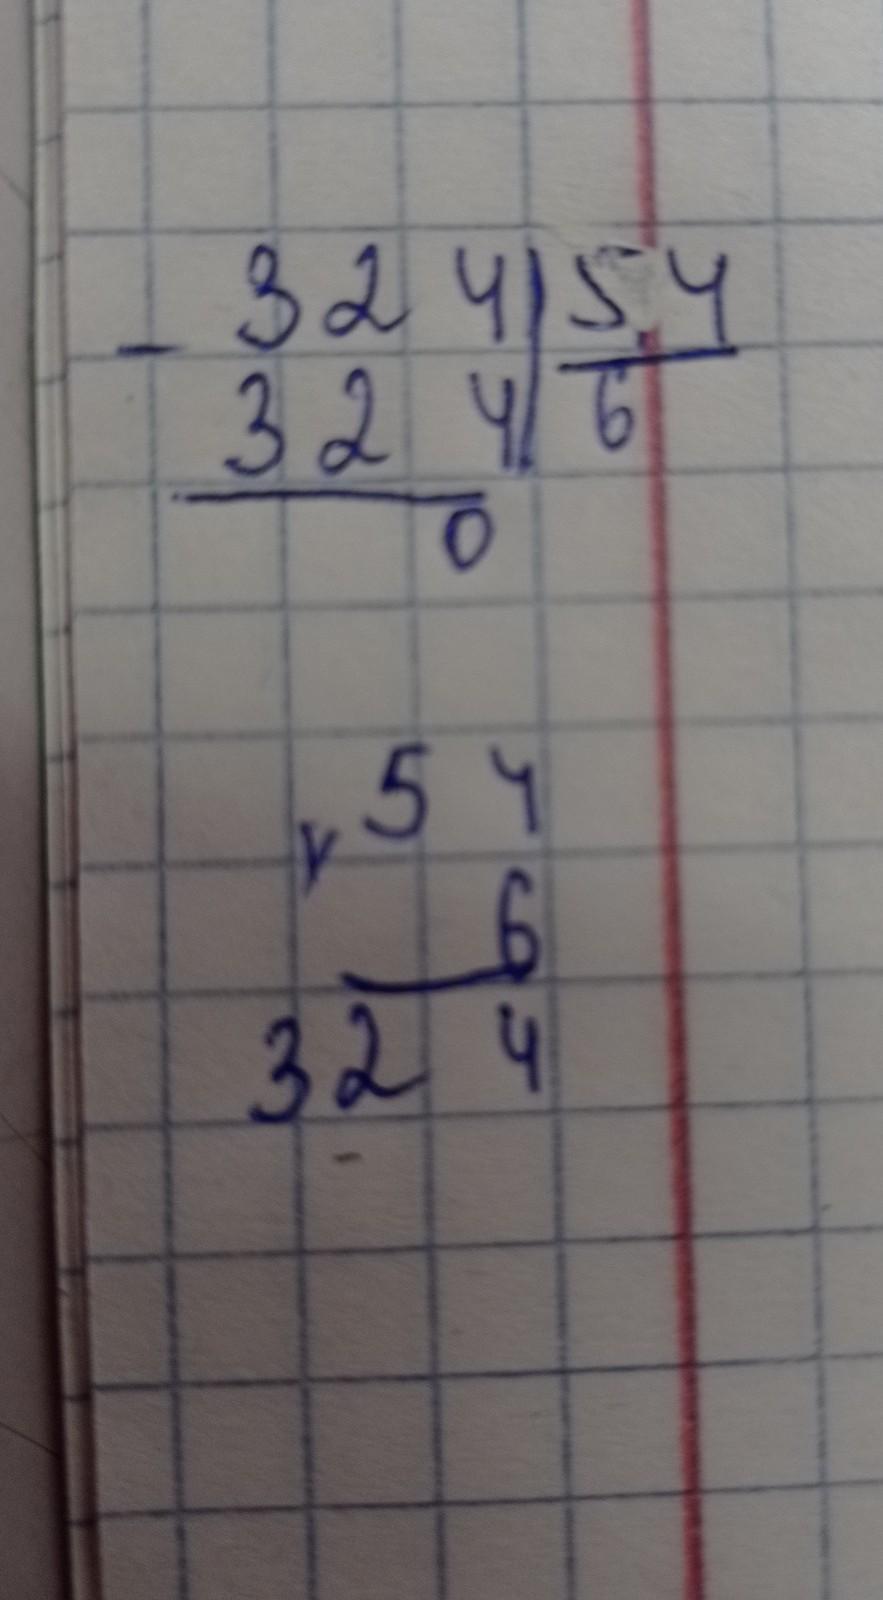 - 324 | 54
324 | 6
0
× 54
6
324